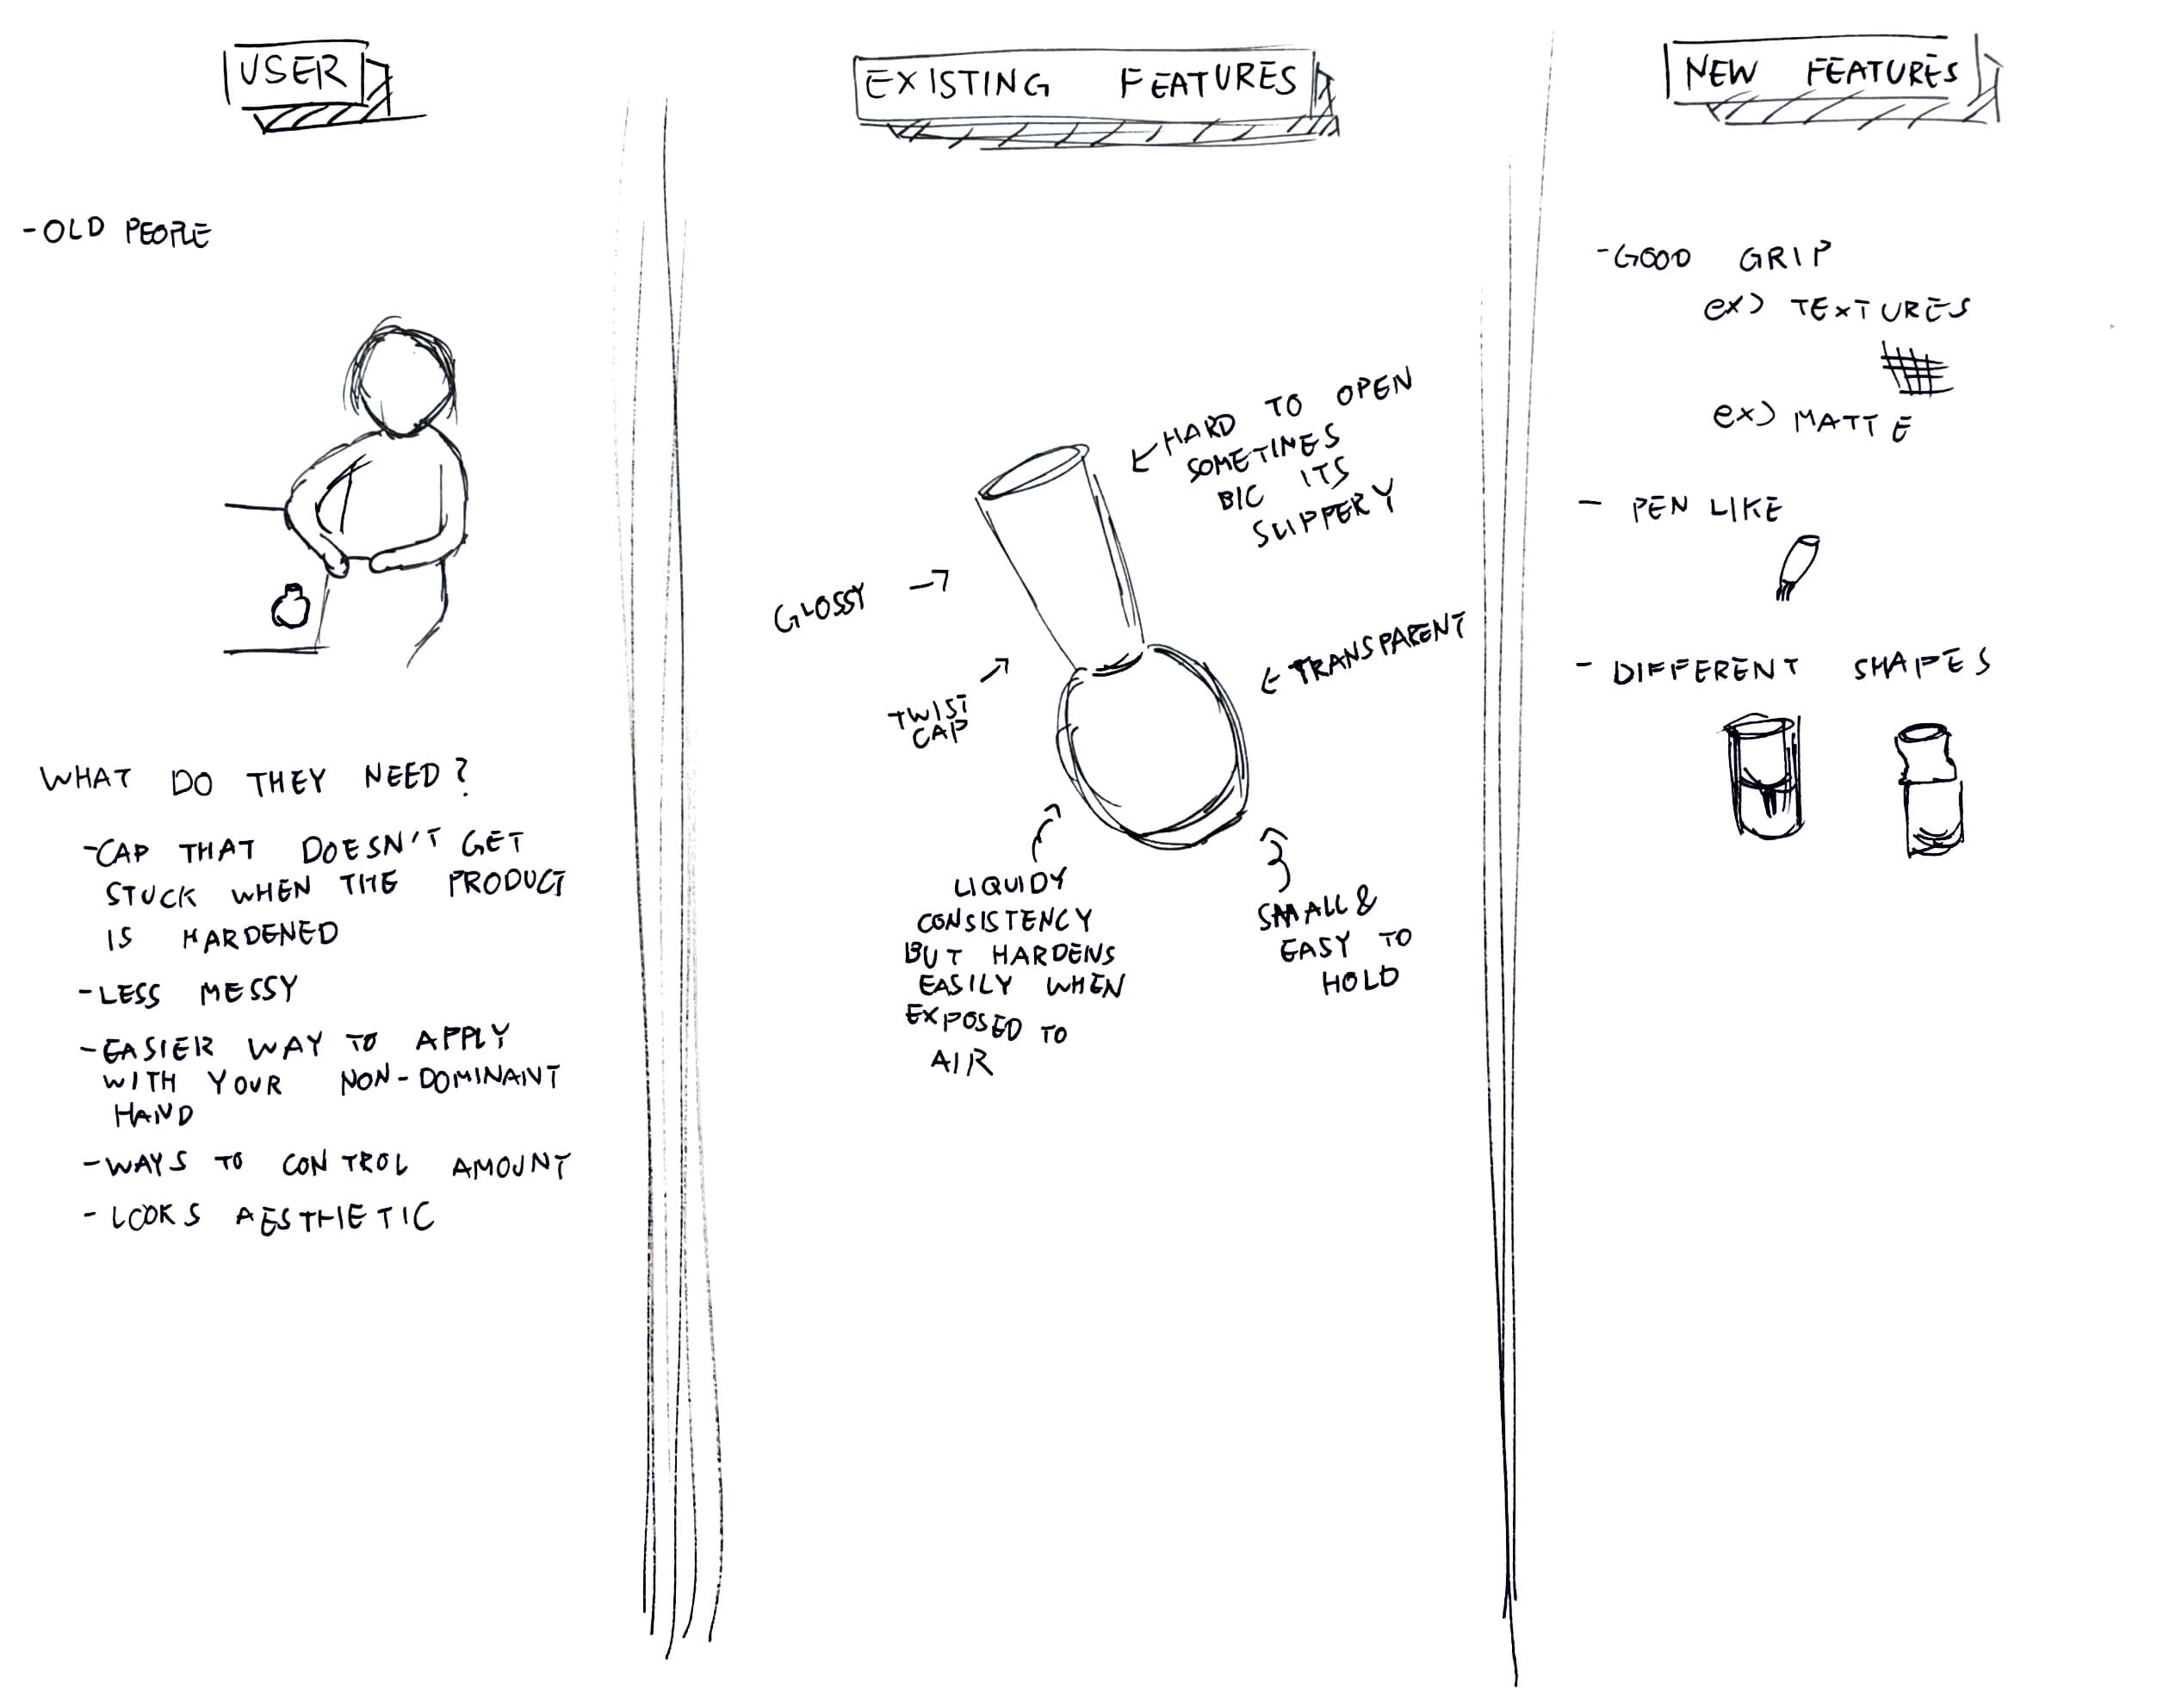 USER
- OLD PEOPLE
WHAT DO THEY NEED?
- CAP THAT DOESN'T GET
STUCK WHEN THE PRODUCT
IS HARDENED
- LESS MESSY
- EASIER WAY TO APPLY
WITH YOUR NON-DOMINANT
HAND
- WAYS TO CONTROL AMOUNT
- LOOKS AESTHETIC
EXISTING FEATURES
HARD TO OPEN
SOMETIMES
BIC ITS
SLIPPERY
GLOSSY
TWIST
CAP
TRANSPARENT
LIQUIDY
CONSISTENCY
BUT HARDENS
EASILY WHEN
EXPOSED TO
AIR
SMALL &
EASY TO
HOLD
NEW FEATURES
- GOOD GRIP
ex) TEXTURES
ex) MATTE
- PEN LIKE
- DIFFERENT SHAPES